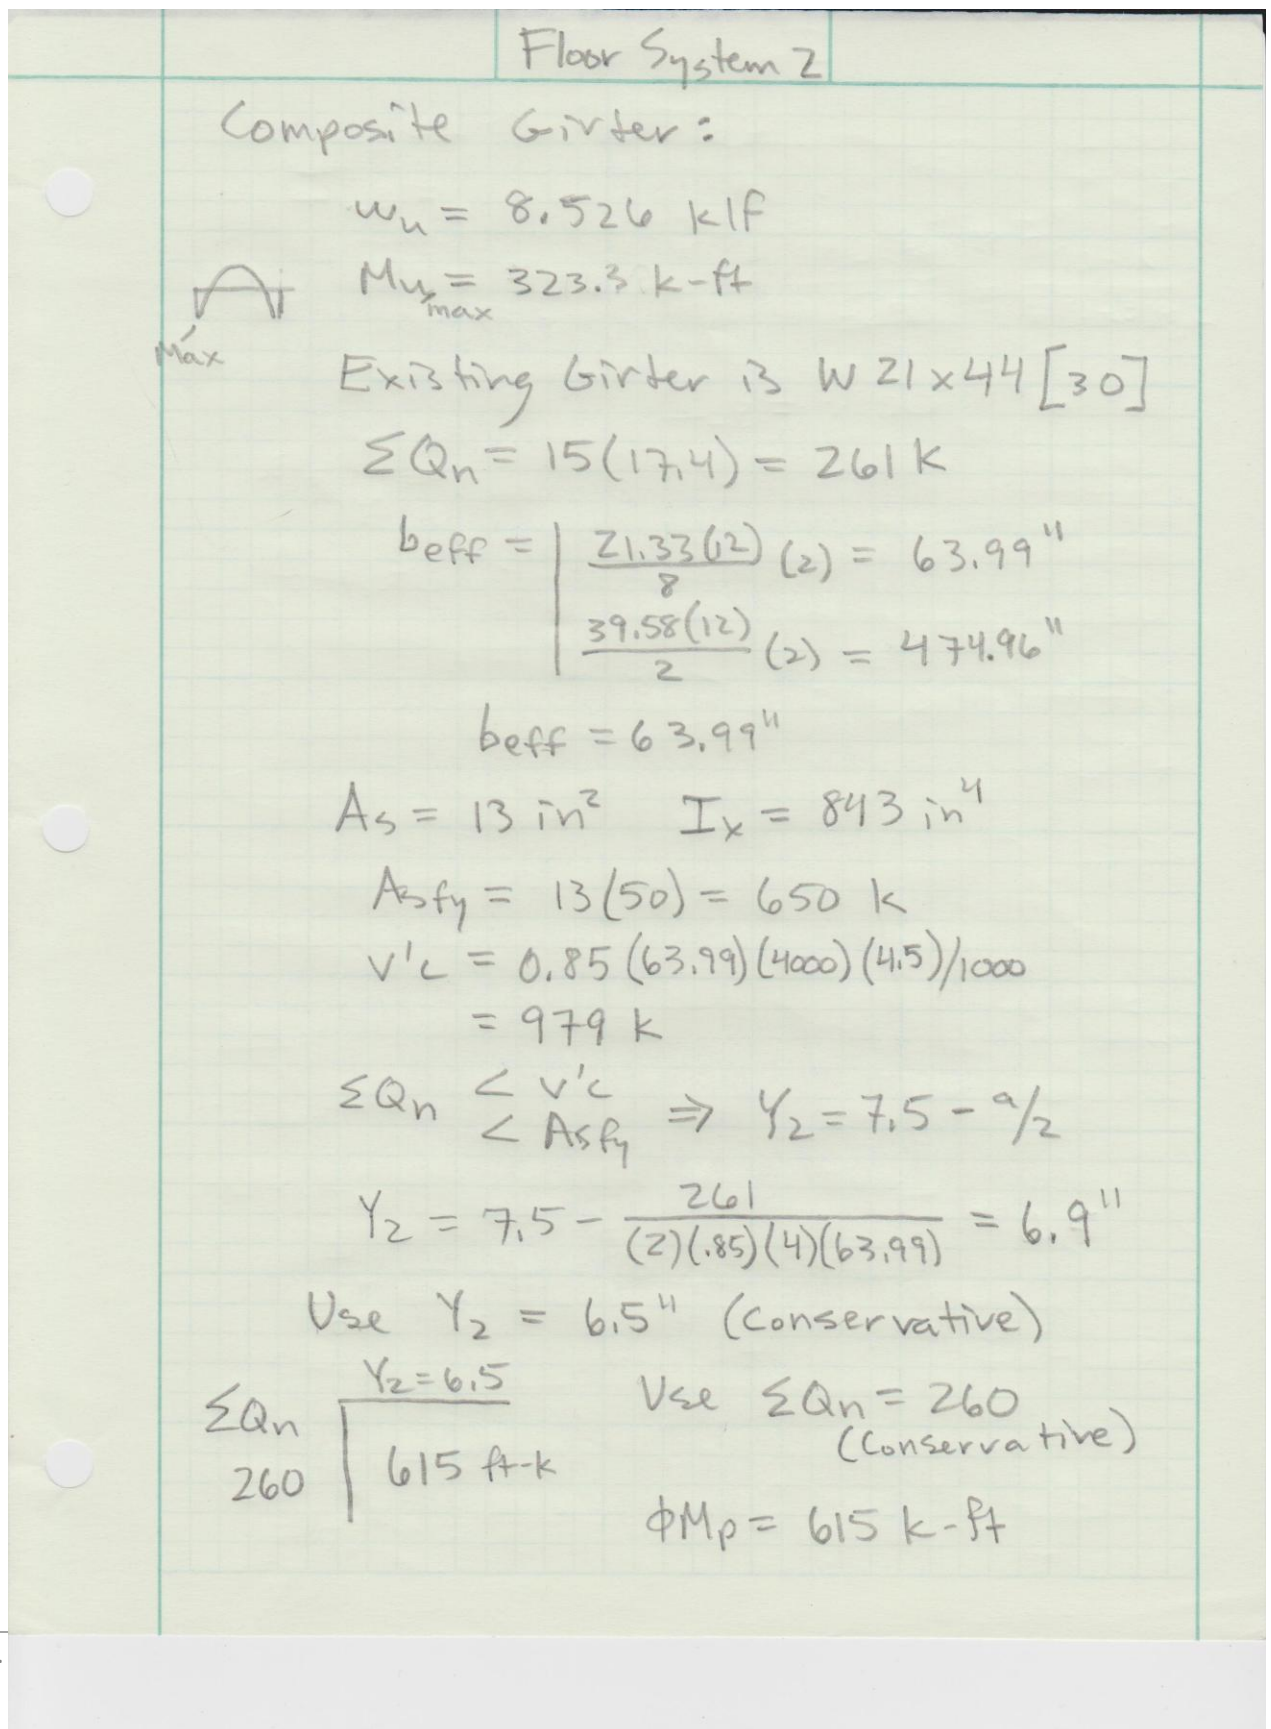 Floor System 2
Composite Girter:
wu = 8.526 klf
Mu,max = 323.3 k-ft
Max
Existing Girter is W21x44 [30]
ΣQn = 15(17.4) = 261 k
beff = | 21.33(12)/8 (2) = 63.99"
| 39.58(12)/2 (2) = 474.96"
beff = 63.99"
As = 13 in² Ix = 843 in⁴
Asfy = 13(50) = 650 k
V'c = 0.85(63.99)(4000)(4.5)/1000
= 979 k
ΣQn < V'c
< Asfy ⇒ Y2 = 7.5 - a/2
Y2 = 7.5 - 261/(2)(.85)(4)(63.99) = 6.9"
Use Y2 = 6.5" (Conservative)
Y2=6.5 Use ΣQn = 260
ΣQn (Conservative)
260 615 ft-k
ϕMp = 615 k-ft